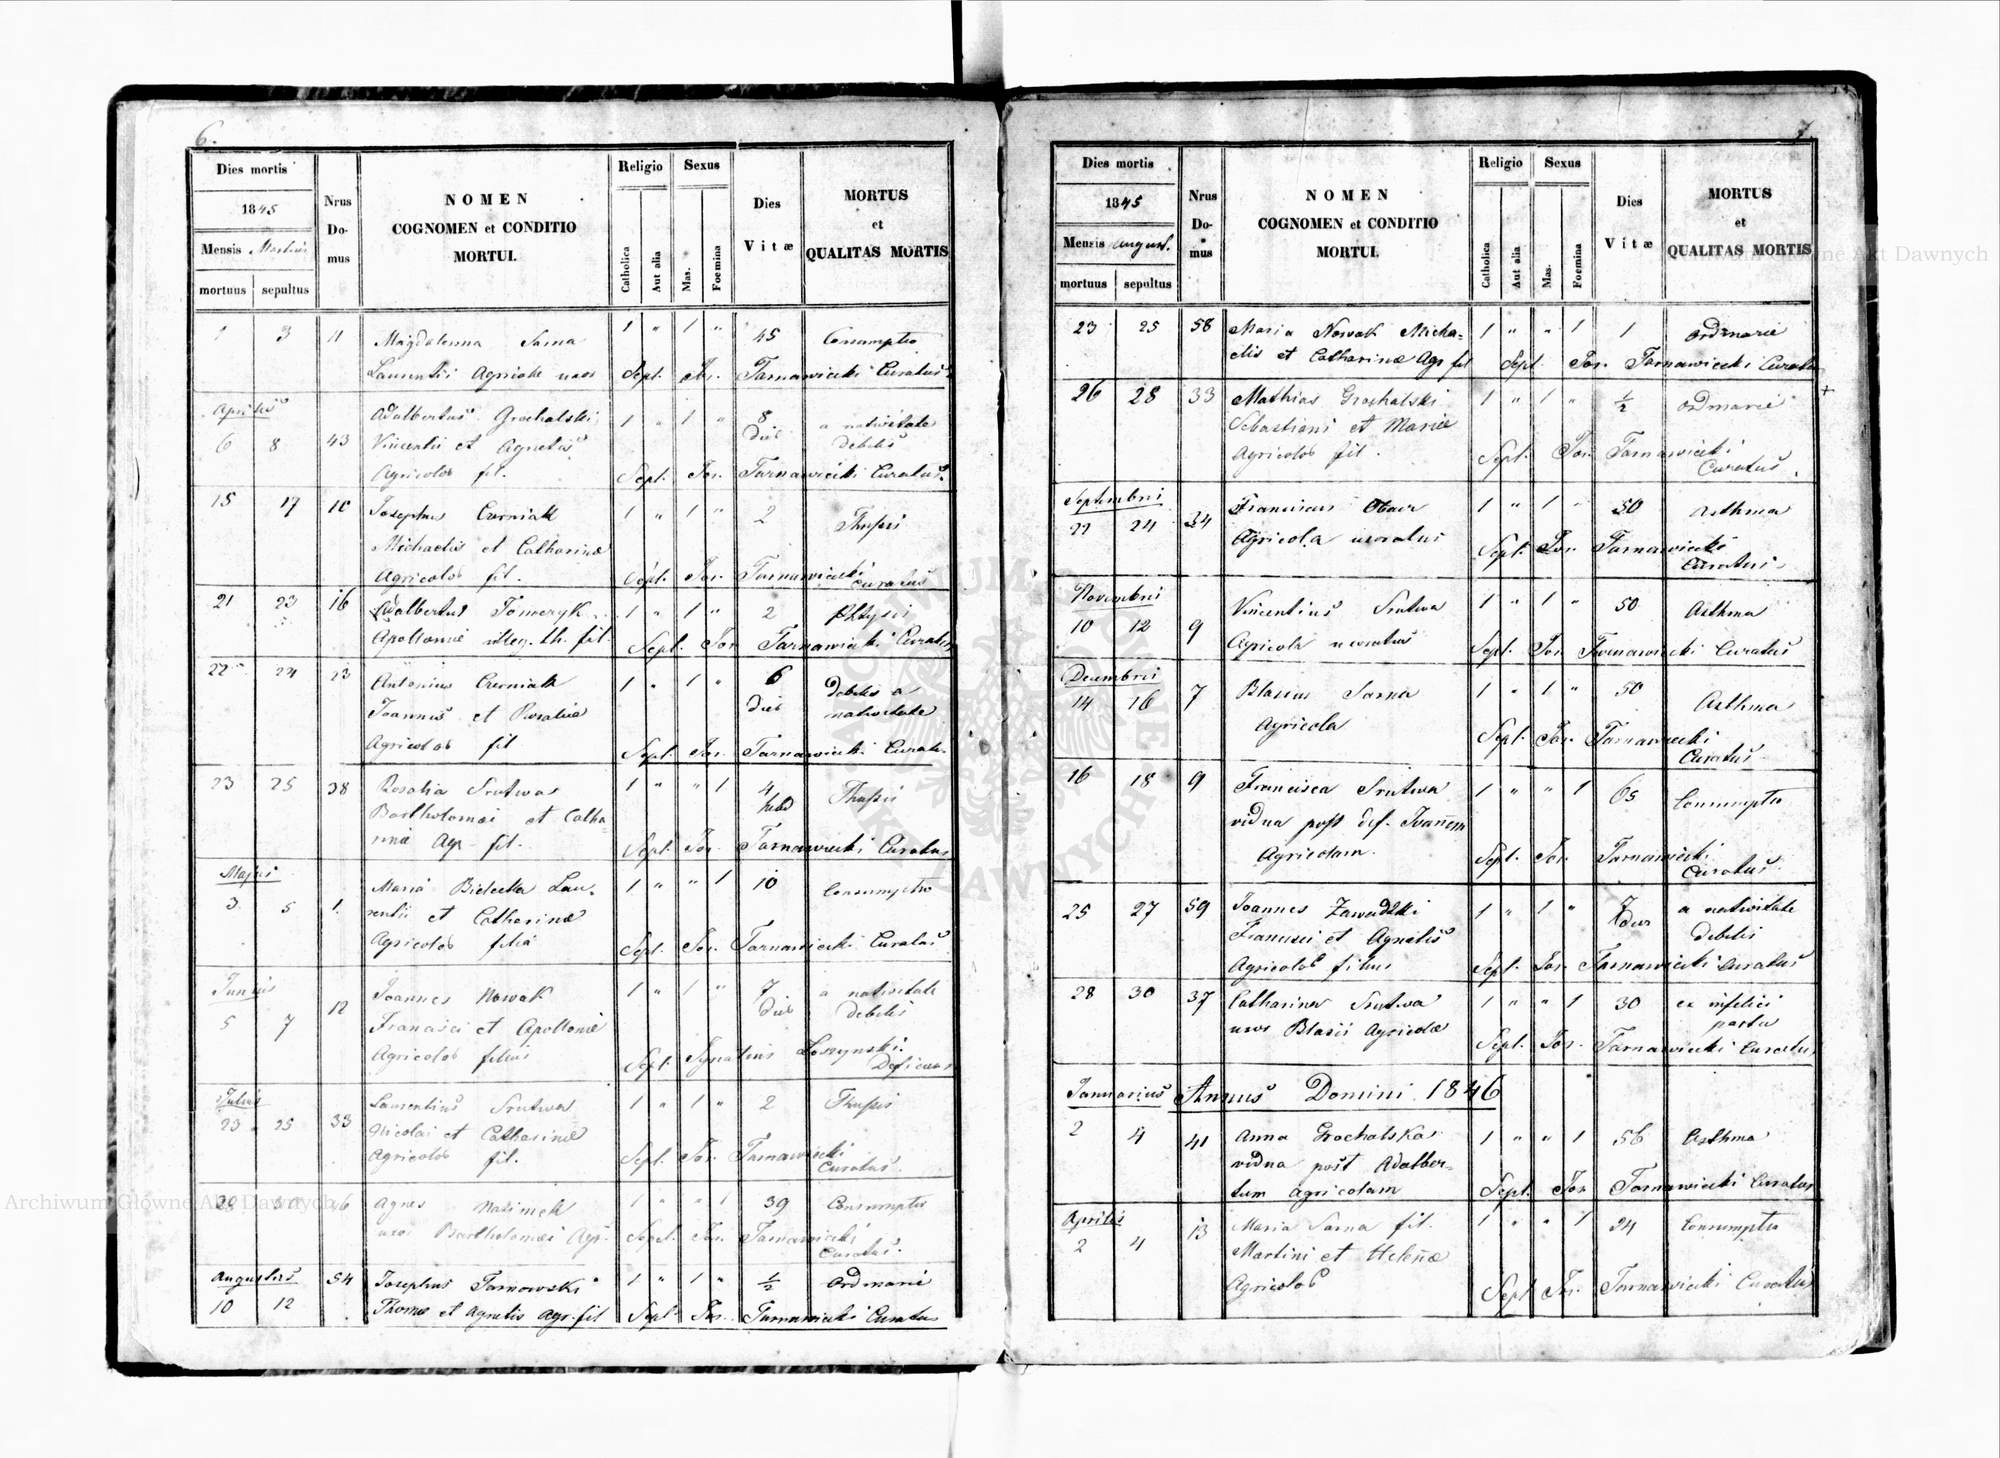 6.
Dies mortis
1845
Mensis Martius
mortuus sepultus
Nrus Domus
NOMEN
COGNOMEN et CONDITIO
MORTUI.
Religio
Catholica
Aut alia
Sexus
Mas.
Foemina
Dies
Vitæ
MORTUS
et
QUALITAS MORTIS
1 3 11 Magdalenna Sarna 1 " 1 " 45 Consumptio
Laurentii Agricole uxor Sept. Jos. Tarnawiecki Curatus
Aprilis
6 8 43 Adalbertus Grochalski 1 " 1 " 8 dies a nativitate
Vincentii et Agnetis debilis
Agricolos fil. Sept. Jos. Tarnawiecki Curatus.
15 17 10 Josephus Czerniak 1 " 1 " 2
Michaelis et Catharinæ
Agricolos fil. Sept. Jos. Tarnawiecki Curatus
21 23 16 Adalbertus 1 " 1 " 2
Apolloniæ illeg. th. fil Sept. Jos. Tarnawiecki Curatus
22 24 23 Antonius Czerniak 1 " 1 " 6 dies debilis a
Joannis et Rosaliæ nativitate
Agricolos fil Sept. Jos. Tarnawiecki Curatus
23 25 38 Rosalia Srutwa 1 " " 1 4 hebd
Bartholomæi et Catha-
rinæ Agr. fil. Sept. Jos. Tarnawiecki Curatus
Majus
3 5 1. Maria Bielecka Lau- 1 " " 1 10 Consumptio
rentii et Catharinæ
Agricolos filia Sept. Jos. Tarnawiecki Curatus
Junius
5 7 12 Joannes Nowak 1 " 1 " 7 dies a nativitate
Francisci et Apolloniæ debilis
Agricolos filius Sept. Ignatius
Julius
23 25 33 Laurentius Srutwa 1 " 1 " 2
Nicolai et Catharinæ
Agricolos fil. Sept. Jos. Tarnawiecki
Curatus.
28 30 46 Agnes 1 " " 1 39 Consumptio
uxor Bartholomæi Agr. Sept. Jos. Tarnawiecki
Curatus.
Augustus
10 12 54 Josephus Tarnowski 1 " 1 " ½ Ordinarie
Thomæ et Agnetis Agr. fil Sept. Jos. Tarnawiecki Curatus
7
Dies mortis
1845
Mensis August.
mortuus sepultus
Nrus Domus
NOMEN
COGNOMEN et CONDITIO
MORTUI.
Religio
Catholica
Aut alia
Sexus
Mas.
Foemina
Dies
Vitæ
MORTUS
et
QUALITAS MORTIS
23 25 58 Maria Nowak Micha- 1 " " 1 1 ordinarie
elis et Catharinæ Agr fil Sept Jos. Tarnawiecki Curatus
26 28 33 Mathias Grochalski 1 " 1 " ½ ordinarie
Sebastiani et Mariæ
Agricolos fil. Sept. Jos. Tarnawiecki
Curatus.
Septembris
22 24 34 Franciscus 1 " 1 " 50 Asthma
Agricola uxoratus Sept. Jos. Tarnawiecki
Curatus.
Novembris
10 12 9 Vincentius Srutwa 1 " 1 " 50 Asthma
Agricola uxoratus Sept. Jos. Tarnawiecki Curatus
Decembris
14 16 7 Blasius Sarna 1 " 1 " 50 Asthma
Agricola Sept. Jos. Tarnawiecki
Curatus
16 18 9 Francisca Srutwa 1 " " 1 65 Consumptio
vidua post def. Joannem
Agricolam. Sept. Jos. Tarnawiecki
Curatus
25 27 59 Joannes Zawadzki 1 " 1 " 7 dies a nativitate
Francisci et Agnetis debilis
Agricolos filius Sept. Jos. Tarnawiecki Curatus
28 30 37 Catharina Srutwa 1 " " 1 30 ex infelici
uxor Blasii Agricolæ partu
Sept. Jos. Tarnawiecki Curatus
Januarius Annus Domini 1846
2 4 41 Anna Grochalska 1 " " 1 56 Asthma
vidua post Adalber-
tum agricolam Sept. Jos Tarnawiecki Curatus
Aprilis
2 4 13 Maria Sarna fil. 1 " " 1 24 Consumptio
Martini et Helenæ
Agricolos Sept Jos. Tarnawiecki Curatus
Archiwum Główne Akt Dawnych
Archiwum Główne Akt Dawnych